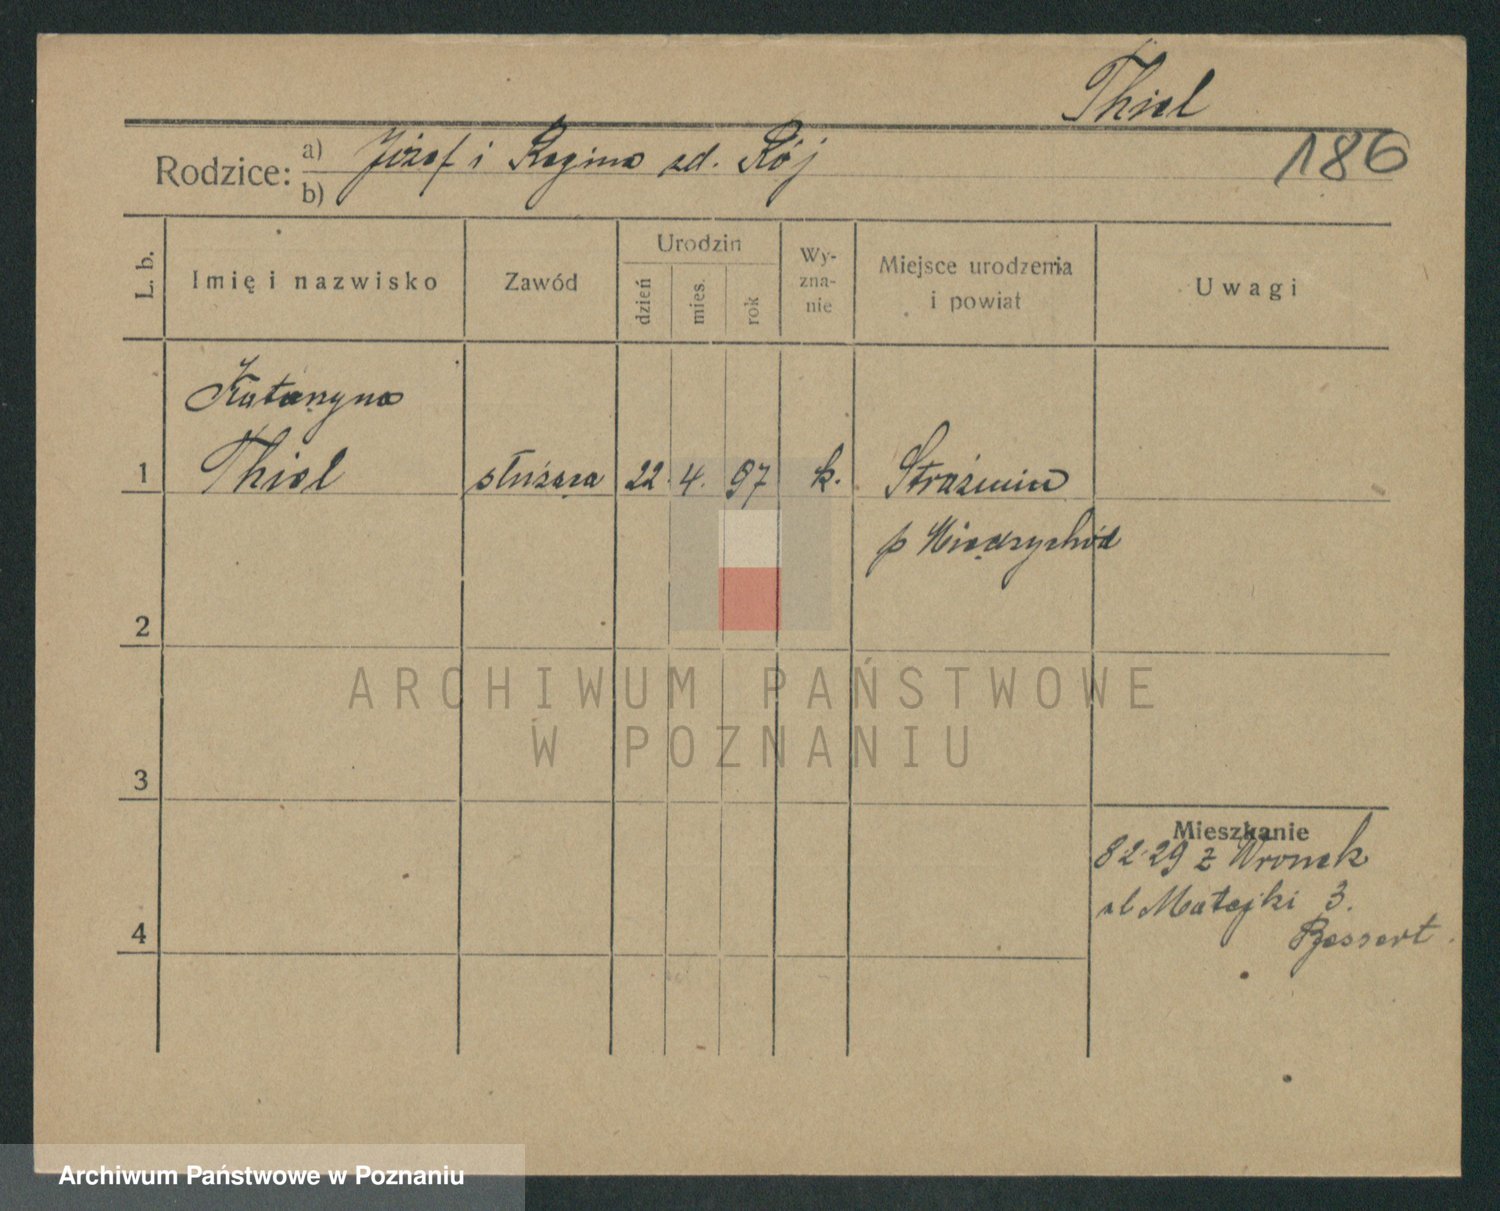 Thiel
186
Rodzice: a) Józef i Regina zd. Rój
b)
L. b.
Imię i nazwisko
Zawód
Urodzin
dzień
mies.
rok
Wy-
zna-
nie
Miejsce urodzenia
i powiat
Uwagi
Katarzyna
1 Thiel służąca 22. 4. 97 k. Strażmin
p Międzychód
2
3
4
Mieszkanie
8 2 29 z Wronek
ul Matejki 3.
Bessert
ARCHIWUM PAŃSTWOWE
W POZNANIU
Archiwum Państwowe w Poznaniu